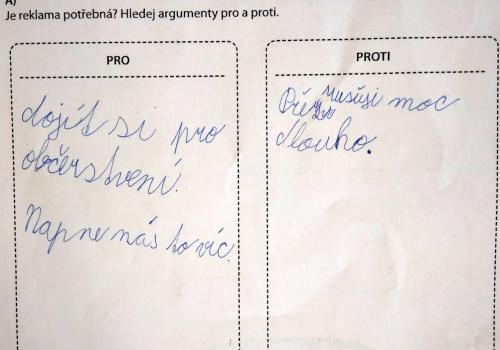 A)
Je reklama potřebná? Hledej argumenty pro a proti.
PRO
dojít si pro
občerstvení.
Napne nás to víc.
PROTI
rusúsi moc
dlouho.